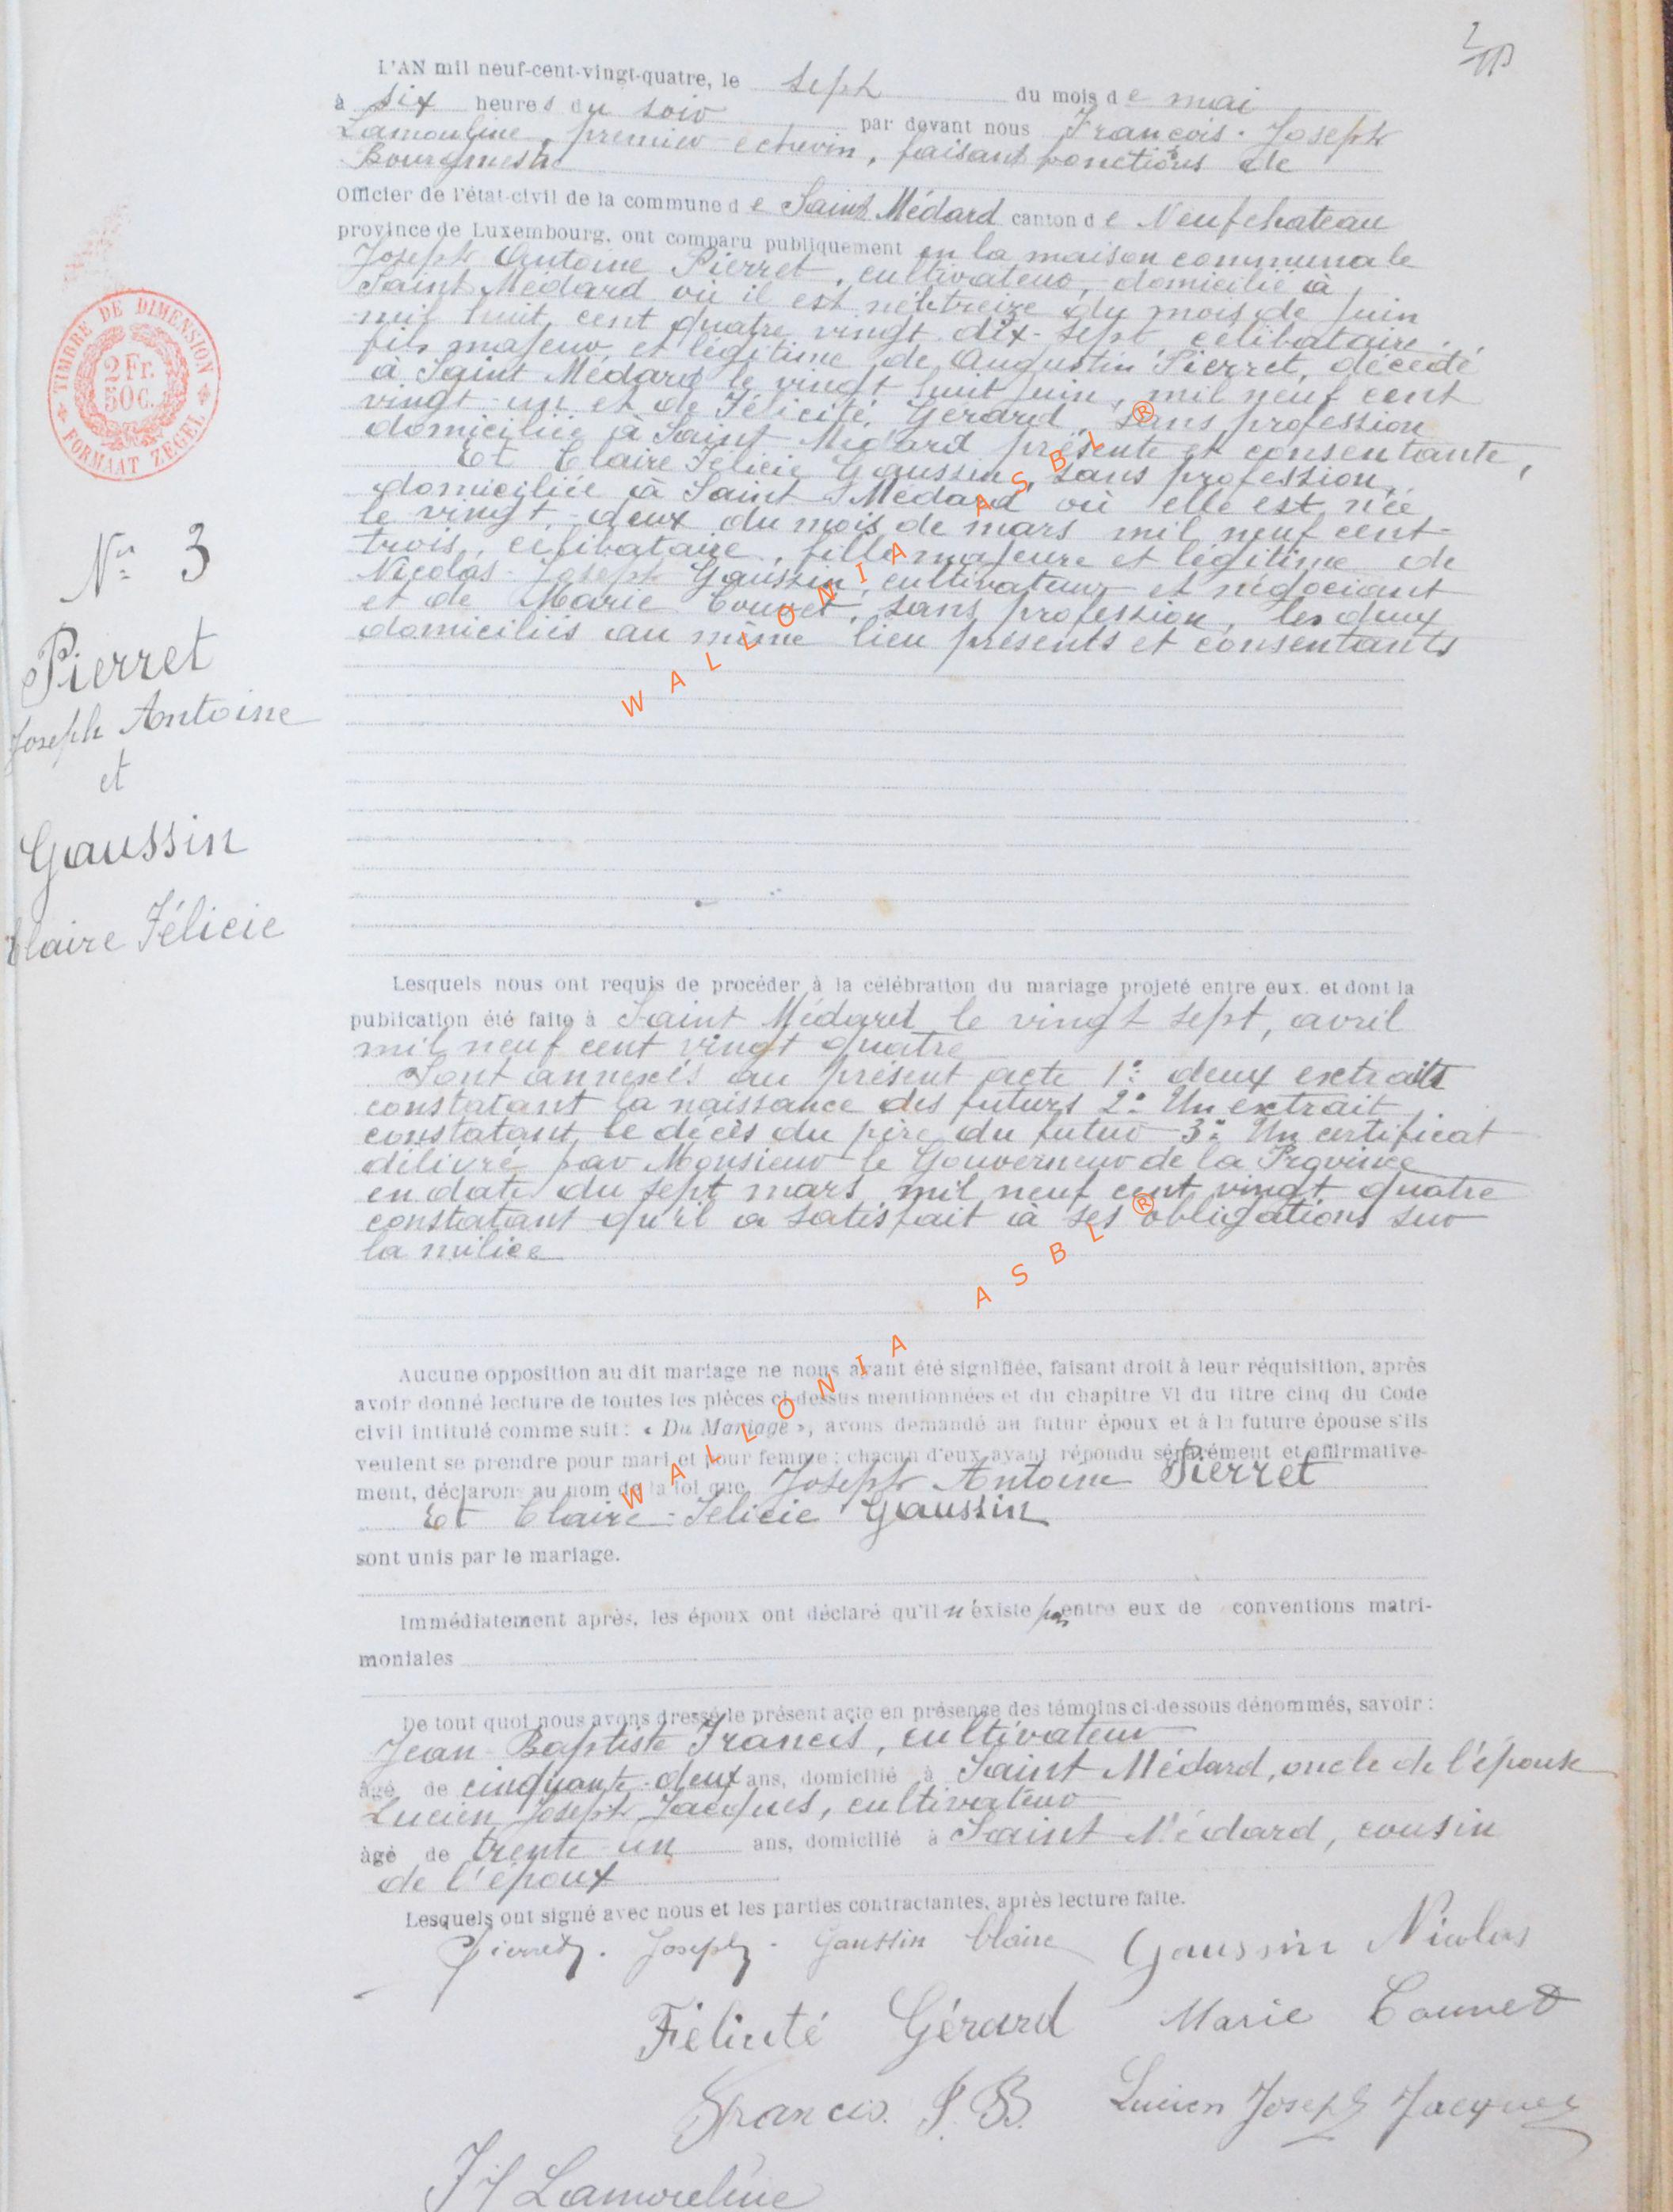 L'AN mil neuf-cent-vingt-quatre, le sept du mois de mai
à six heures du soir par devant nous François-Joseph
Lamouline, premier echevin, faisant fonctions de
Bourgmestre
Officier de l'état-civil de la commune de Saint Médard canton de Neufchateau
province de Luxembourg, ont comparu publiquement en la maison communale
Joseph Antoine Pierret, cultivateur, domicilié à
Saint Médard où il est né treize du mois de juin
mil huit cent quatre vingt dix-sept, célibataire,
fils majeur et légitime de Augustin Pierret, décédé
à Saint Médard le vingt huit juin, mil neuf cent
vingt-un et de Félicité Gérard, sans profession
domiciliée à Saint Médard présente et consentante,
Et Claire Félicie Gaussin, sans profession,
domiciliée à Saint Médard où elle est née
le vingt-deux du mois de mars mil neuf cent
trois, célibataire, fille majeure et légitime de
Nicolas-Joseph Gaussin, cultivateur et négociant
et de Marie Counet, sans profession, les deux
domiciliés au même lieu présents et consentants
Lesquels nous ont requis de procéder à la célébration du mariage projeté entre eux. et dont la
publication été faite à Saint Médard le vingt sept, avril
mil neuf cent vingt quatre
Sont annexés au présent acte 1° deux extraits
constatant la naissance des futurs 2° Un extrait
constatant le décès du père du futur 3° Un certificat
délivré par Monsieur le Gouverneur de la Province
en date du sept mars mil neuf cent vingt quatre
constatant qu'il a satisfait à ses obligations sur
la milice
Aucune opposition au dit mariage ne nous ayant été signifiée, faisant droit à leur réquisition, après
avoir donné lecture de toutes les pièces ci-dessus mentionnées et du chapitre VI du titre cinq du Code
civil intitulé comme suit : « Du Mariage », avons demandé au futur époux et à la future épouse s'ils
veulent se prendre pour mari et pour femme ; chacun d'eux ayant répondu séparément et affirmative-
ment, déclarons au nom de la loi que Joseph Antoine Pierret
Et Claire-Félicie Gaussin
sont unis par le mariage.
Immédiatement après, les époux ont déclaré qu'il n'existe pas entre eux de conventions matri-
moniales
De tout quoi nous avons dressé le présent acte en présence des témoins ci-dessous dénommés, savoir :
Jean-Baptiste Francis, cultivateur
âgé de cinquante-deux ans, domicilié à Saint Médard, oncle de l'épouse
Lucien Joseph Jacques, cultivateur
âgé de trente-un ans, domicilié à Saint Médard, cousin
de l'époux
Lesquels ont signé avec nous et les parties contractantes, après lecture faite.
Pierret. Joseph. Gaussin Claire Gaussin Nicolas
Félicité Gérard Marie Counet
Francis. J. B. Lucien Joseph Jacques
J J Lamouline
TIMBRE DE DIMENSION
2 Fr.
50 C.
FORMAAT ZEGEL
N° 3
Pierret
Joseph Antoine
et
Gaussin
Claire Félicie
WALLONIA ASBL ®
WALLONIA ASBL ®